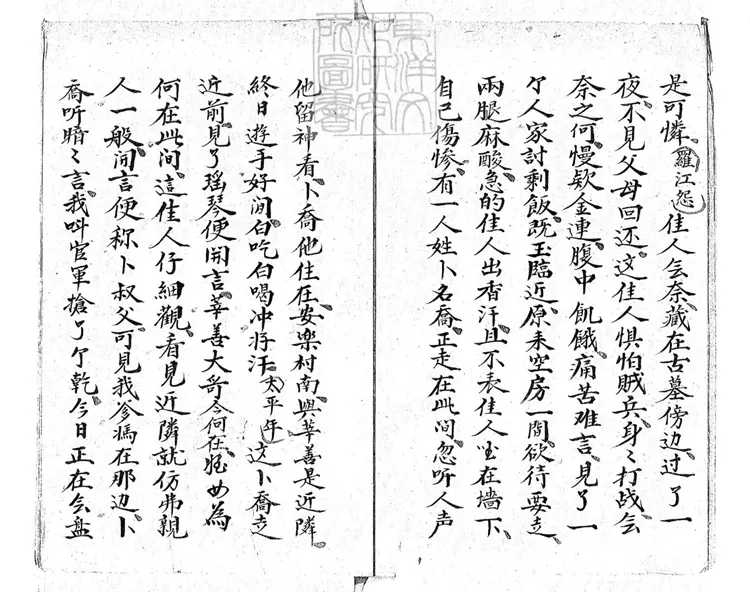 是可憐 羅江怨 佳人無奈藏在古墓傍边过了一
夜不見父母回还这佳人惧怕贼兵身〻打战无
奈之何慢欵金連腹中飢餓痛苦难言見了一
个人家討剩飯既玉臨近原来空房一間欲待要走
兩腿麻酸急的佳人出香汗且不表佳人坐在墙下
自己傷惨有一人姓卜名喬正走在此间忽听人声
他留神看卜喬他住在安楽村南與莘善是近隣
終日遊手好闲白吃白喝冲好汗 太平年 这卜喬走
近前見了瑶琴便開言莘善大哥今何在姪女為
何在此间这佳人仔細觀看見近隣就仿弗親
人一般闲言便称卜叔父可見我爹媽在那边卜
喬听暗〻言我叫官軍搶了个乾今日正在无盤
東洋文化研究所圖書